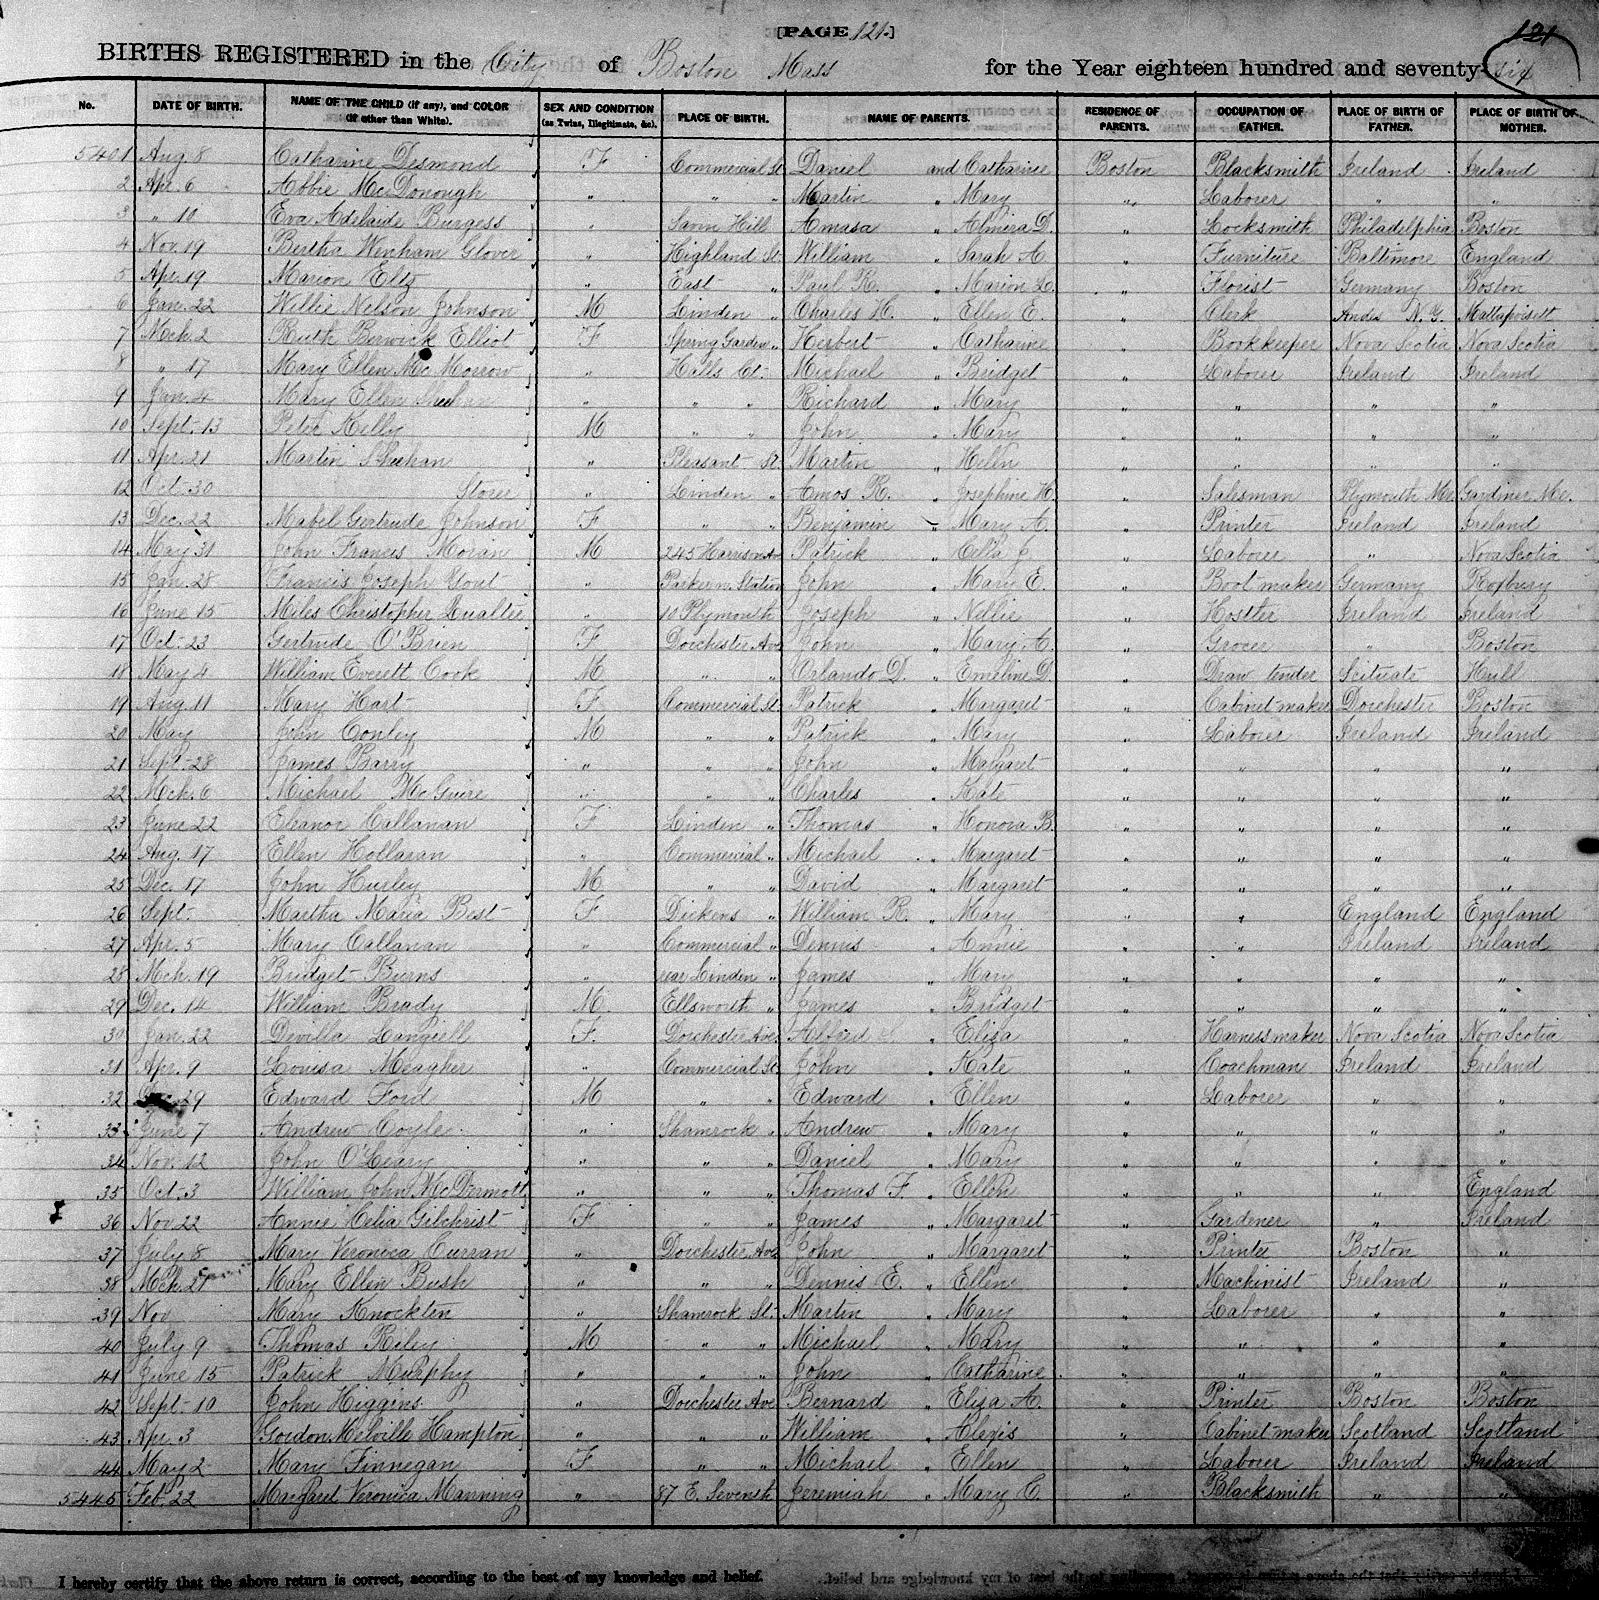 [PAGE 121.]
121
BIRTHS REGISTERED in the City of Boston Mass for the Year eighteen hundred and seventy-six
No. DATE OF BIRTH. NAME OF THE CHILD (if any), and COLOR (if other than White). SEX AND CONDITION (as Twins, Illegitimate, &c). PLACE OF BIRTH. NAME OF PARENTS. RESIDENCE OF PARENTS. OCCUPATION OF FATHER. PLACE OF BIRTH OF FATHER. PLACE OF BIRTH OF MOTHER.
5401 Aug. 8 Catharine Desmond F Commercial St Daniel and Catharine Boston Blacksmith Ireland Ireland
2 Apr. 6 Abbie McDonough " " " Martin " Mary " Laborer " "
3 " 10 Eva Adelaide Burgess " Savin Hill Amasa " Almira D. " Locksmith Philadelphia Boston
4 Nov. 19 Bertha Wenham Glover " Highland St. William " Sarah A. " Furniture Baltimore England
5 Apr. 19 Marion Eltz " East " Paul R. " Marion L. " Florist Germany Boston
6 Jan. 22 Willie Nelson Johnson M Linden " Charles H. " Ellen E. " Clerk Andes N.Y. Mattapoisett
7 Mch. 2 Ruth Berwick Elliot F Spring Garden " Herbert " Catharine " Bookkeeper Nova Scotia Nova Scotia
8 " 17 Mary Ellen McMorrow " Halls Ct. Michael " Bridget " Laborer Ireland Ireland
9 Jan. 4 Mary Ellen Sheehan " " " Richard " Mary " " " "
10 Sept. 13 Peter Kelly M " " John " Mary " " " "
11 Apr. 21 Martin Sheehan " Pleasant St. Martin " Helen " " " "
12 Oct. 30 Storer " Linden " Amos R. " Josephine H. " Salesman Plymouth Me. Gardiner Me.
13 Dec. 22 Mabel Gertrude Johnson F " " Benjamin " Mary A. " Printer Ireland Ireland
14 May 31 John Francis Moran M 245 Harrison Av Patrick " Celia J. " Laborer " Nova Scotia
15 Jan. 28 Francis Joseph " Station John " Mary E. " Boot maker Germany Roxbury
16 June 15 Miles Christopher Qualter " 10 Plymouth Joseph " Nellie " Hostler Ireland Ireland
17 Oct. 23 Gertrude O'Brien F Dorchester Ave John " Mary A. " Grocer " Boston
18 May 4 William Everett Cook M " " Orlando D. " Emeline D. " Draw tender Scituate Hull
19 Aug. 11 Mary Hart F Commercial St. Patrick " Margaret " Cabinet maker Dorchester Boston
20 May John Conley M " " Patrick " Mary " Laborer Ireland Ireland
21 Sept. 28 James Barry " " " John " Margaret " " " "
22 Mch. 6 Michael McGuire " " " Charles " Kate " " " "
23 June 22 Eleanor Callanan F Linden " Thomas " Honora B. " " " "
24 Aug. 17 Ellen Hollaran " Commercial " Michael " Margaret " " " "
25 Dec. 17 John Hurley M " " David " Margaret " " " "
26 Sept. Martha Maria Best F Dickens " William R. " Mary " " England England
27 Apr. 5 Mary Callanan " Commercial " Dennis " Annie " " Ireland Ireland
28 Mch. 19 Bridget Burns " rear Linden " James " Mary " " " "
29 Dec. 14 William Brady M. Ellsworth " James " Bridget " " " "
30 Jan. 22 Devilla Langiell F. Dorchester Ave. Alfred " Eliza " Harness maker Nova Scotia Nova Scotia
31 Apr. 9 Louisa Meagher " Commercial St. John " Kate " Coachman Ireland Ireland
32 29 Edward Ford M " " Edward " Ellen " Laborer " "
33 June 7 Andrew Coyle " Shamrock " Andrew " Mary " " " "
34 Nov. 12 John O'Leary " " " Daniel " Mary " " " "
35 Oct. 3 William John McDermott " " " Thomas F. " Ellen " " " England
36 Nov. 22 Annie Celia Gilchrist F " " James " Margaret " Gardener " Ireland
37 July 8 Mary Veronica Curran " Dorchester Ave John " Margaret " Printer Boston "
38 Mch. 21 Mary Ellen Bush " " " Dennis E. " Ellen " Machinist Ireland "
39 Nov Mary Knockten " Shamrock St. Martin " Mary " Laborer " "
40 July 9 Thomas Riley M " " Michael " Mary " " " "
41 June 15 Patrick Murphy " " " John " Catharine " " " "
42 Sept. 10 John Higgins " Dorchester Ave Bernard " Eliza A. " Printer Boston Boston
43 Apr. 3 Gordon Melville Hampton " " " William " Alexis " Cabinet maker Scotland Scotland
44 May 2 Mary Finnegan F " " Michael " Ellen " Laborer Ireland Ireland
5445 Feb. 22 Margaret Veronica Manning " 87 E. Seventh Jeremiah " Mary C. " Blacksmith " "
I hereby certify that the above return is correct, according to the best of my knowledge and belief.